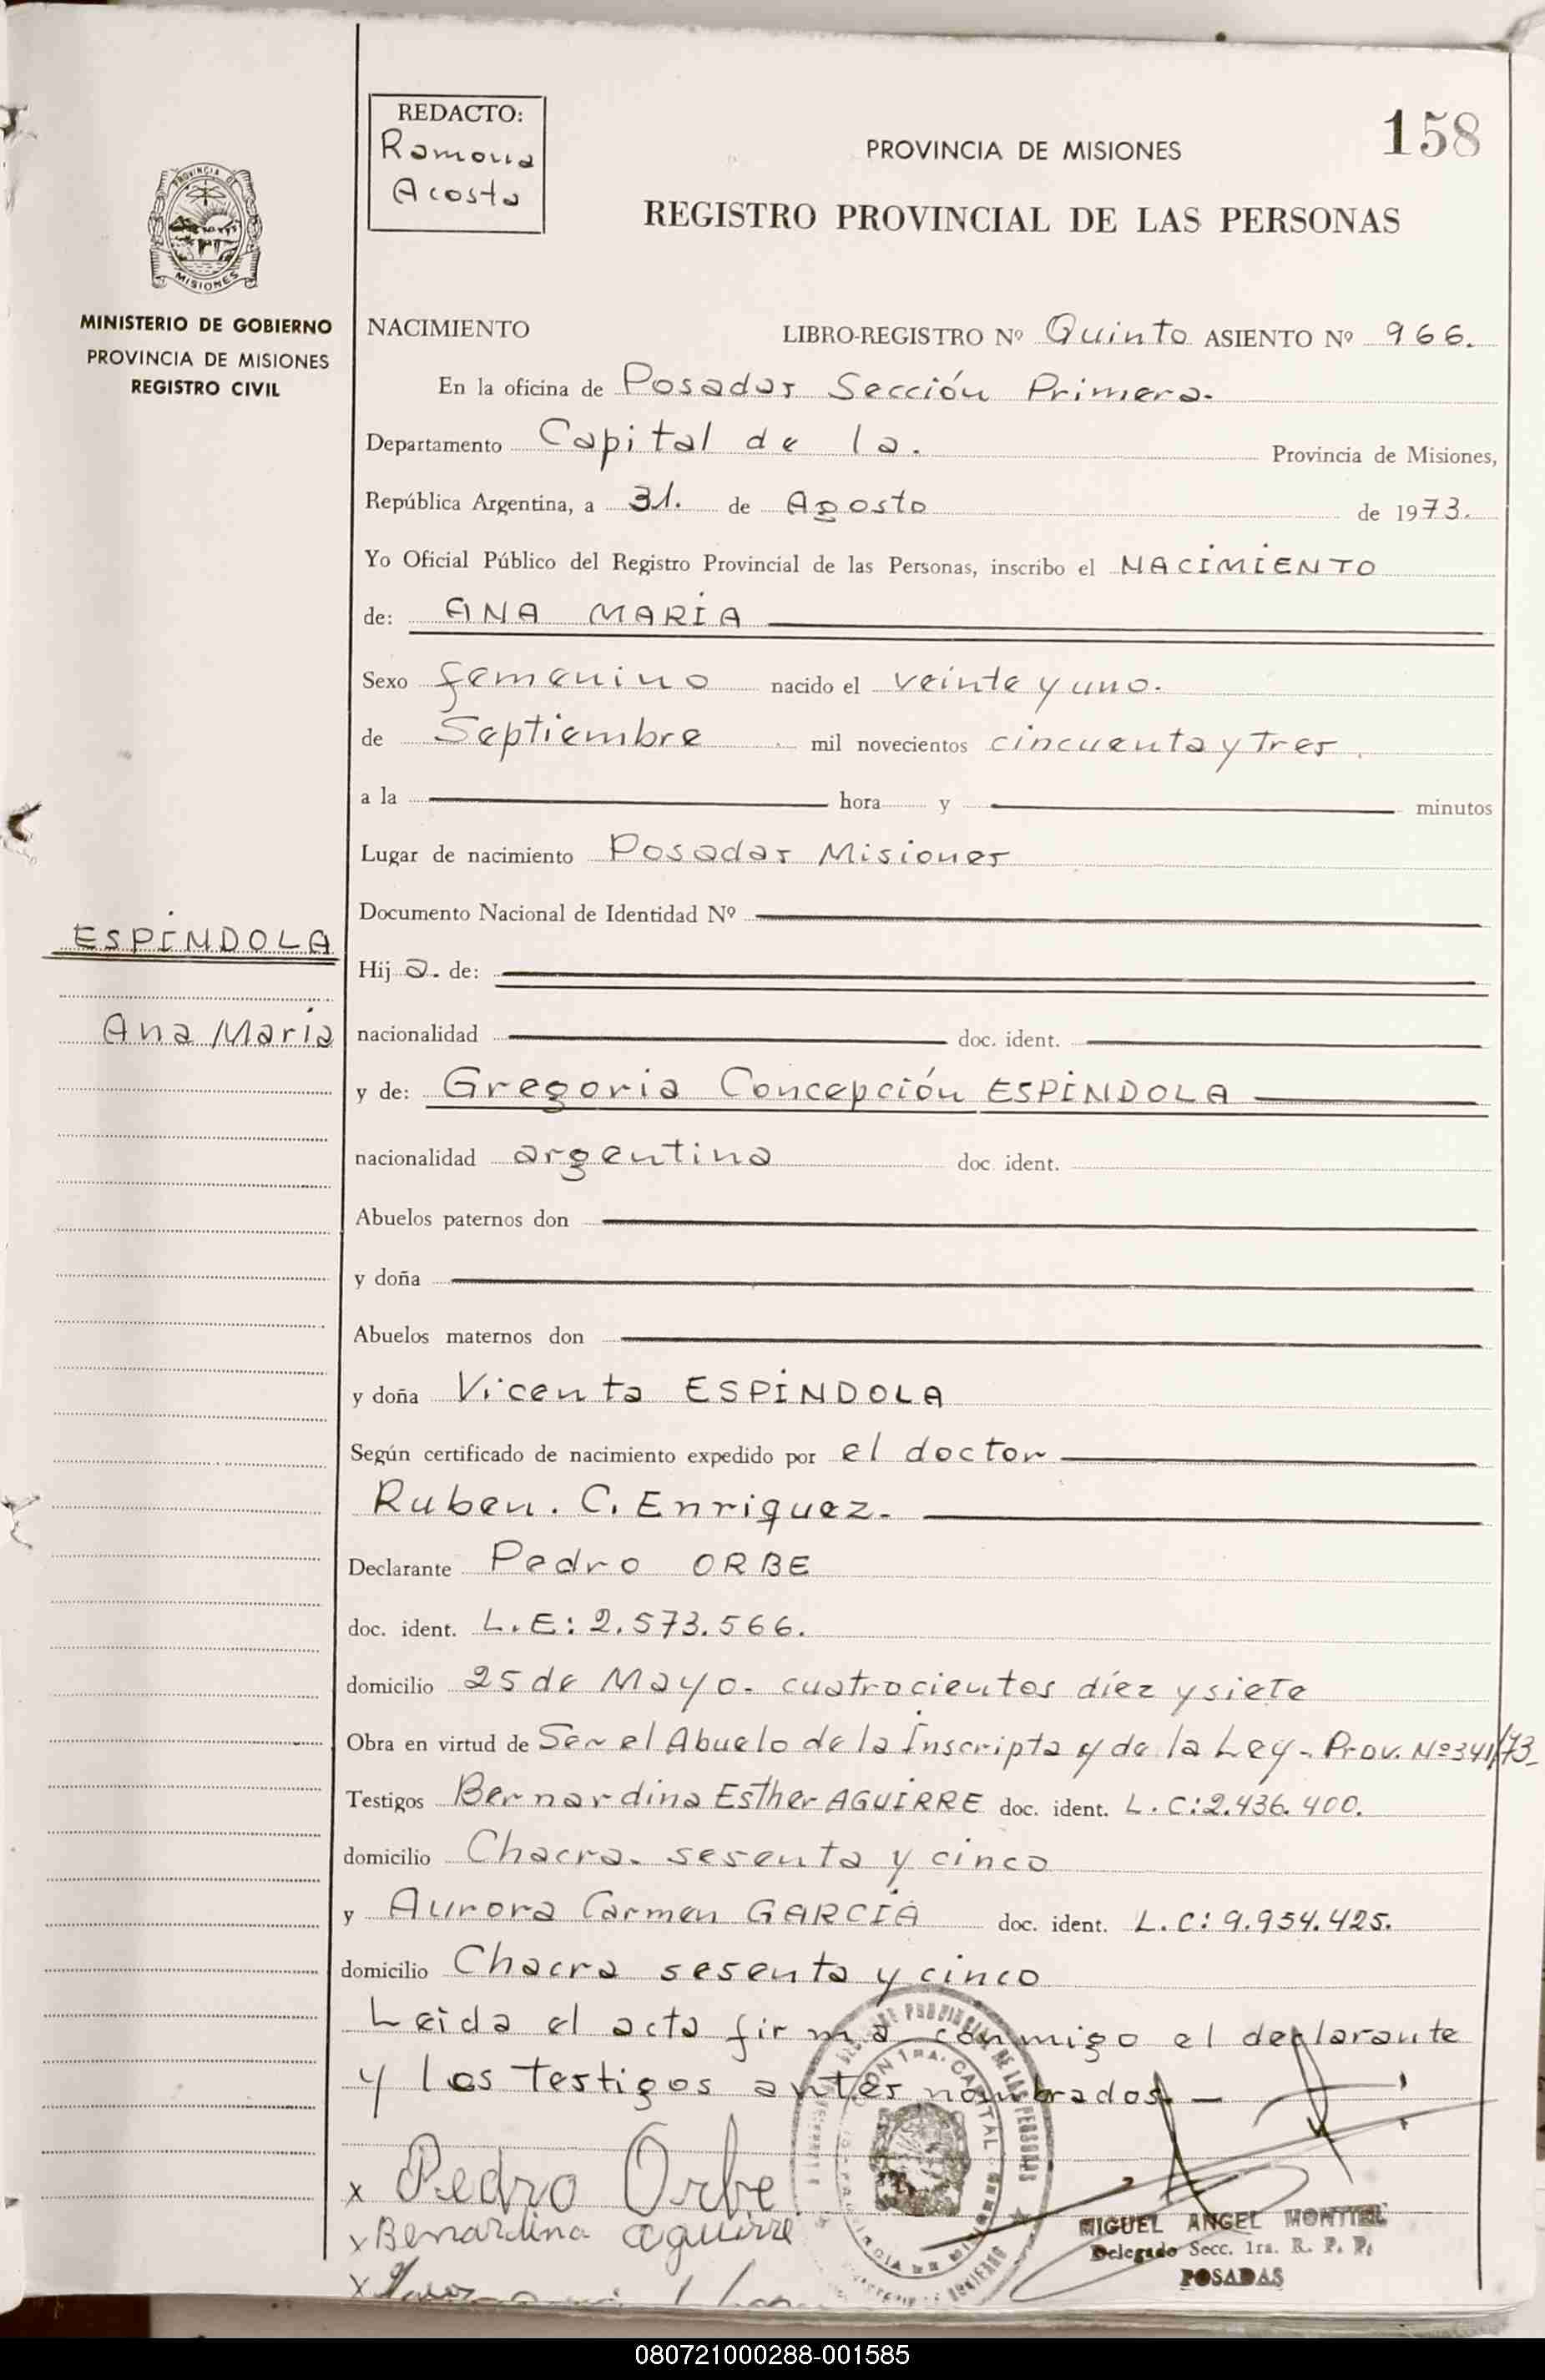 REDACTO:
Ramona
Acosta
158
PROVINCIA DE MISIONES
REGISTRO PROVINCIAL DE LAS PERSONAS
PROVINCIA DE
MISIONES
MINISTERIO DE GOBIERNO
PROVINCIA DE MISIONES
REGISTRO CIVIL
NACIMIENTO LIBRO-REGISTRO Nº Quinto ASIENTO Nº 966.
En la oficina de Posadas Sección Primera.
Departamento Capital de la. Provincia de Misiones,
República Argentina, a 31. de Agosto de 1973.
Yo Oficial Público del Registro Provincial de las Personas, inscribo el NACIMIENTO
de: ANA MARÍA
Sexo femenino nacido el veinte y uno.
de Septiembre mil novecientos cincuenta y tres.
a la hora y minutos
Lugar de nacimiento Posadas Misiones
Documento Nacional de Identidad Nº
ESPÍNDOLA
Hij a. de:
Ana María
nacionalidad doc. ident.
y de: Gregoria Concepción ESPÍNDOLA
nacionalidad argentina doc. ident.
Abuelos paternos don
y doña
Abuelos maternos don
y doña Vicenta ESPÍNDOLA
Según certificado de nacimiento expedido por el doctor
Ruben. C. Enriquez.
Declarante Pedro ORBE
doc. ident. L.E: 2.573.566.
domicilio 25 de Mayo. cuatrocientos díez y siete
Obra en virtud de Ser el Abuelo de la Inscripta y de la Ley - Prov. Nº 341/73_
Testigos Bernardina Esther AGUIRRE doc. ident. L.C: 2.436.400.
domicilio Chacra. sesenta y cinco
y Aurora Carmen GARCÍA doc. ident. L.C: 9.954.425.
domicilio Chacra sesenta y cinco
Leida el acta firma conmigo el declarante
y los testigos antes nombrados. —
x Pedro Orbe
x Benardina aguirre
x
MIGUEL ANGEL MONTIEL
Delegado Secc. 1ra. R. P. P.
POSADAS
080721000288-001585